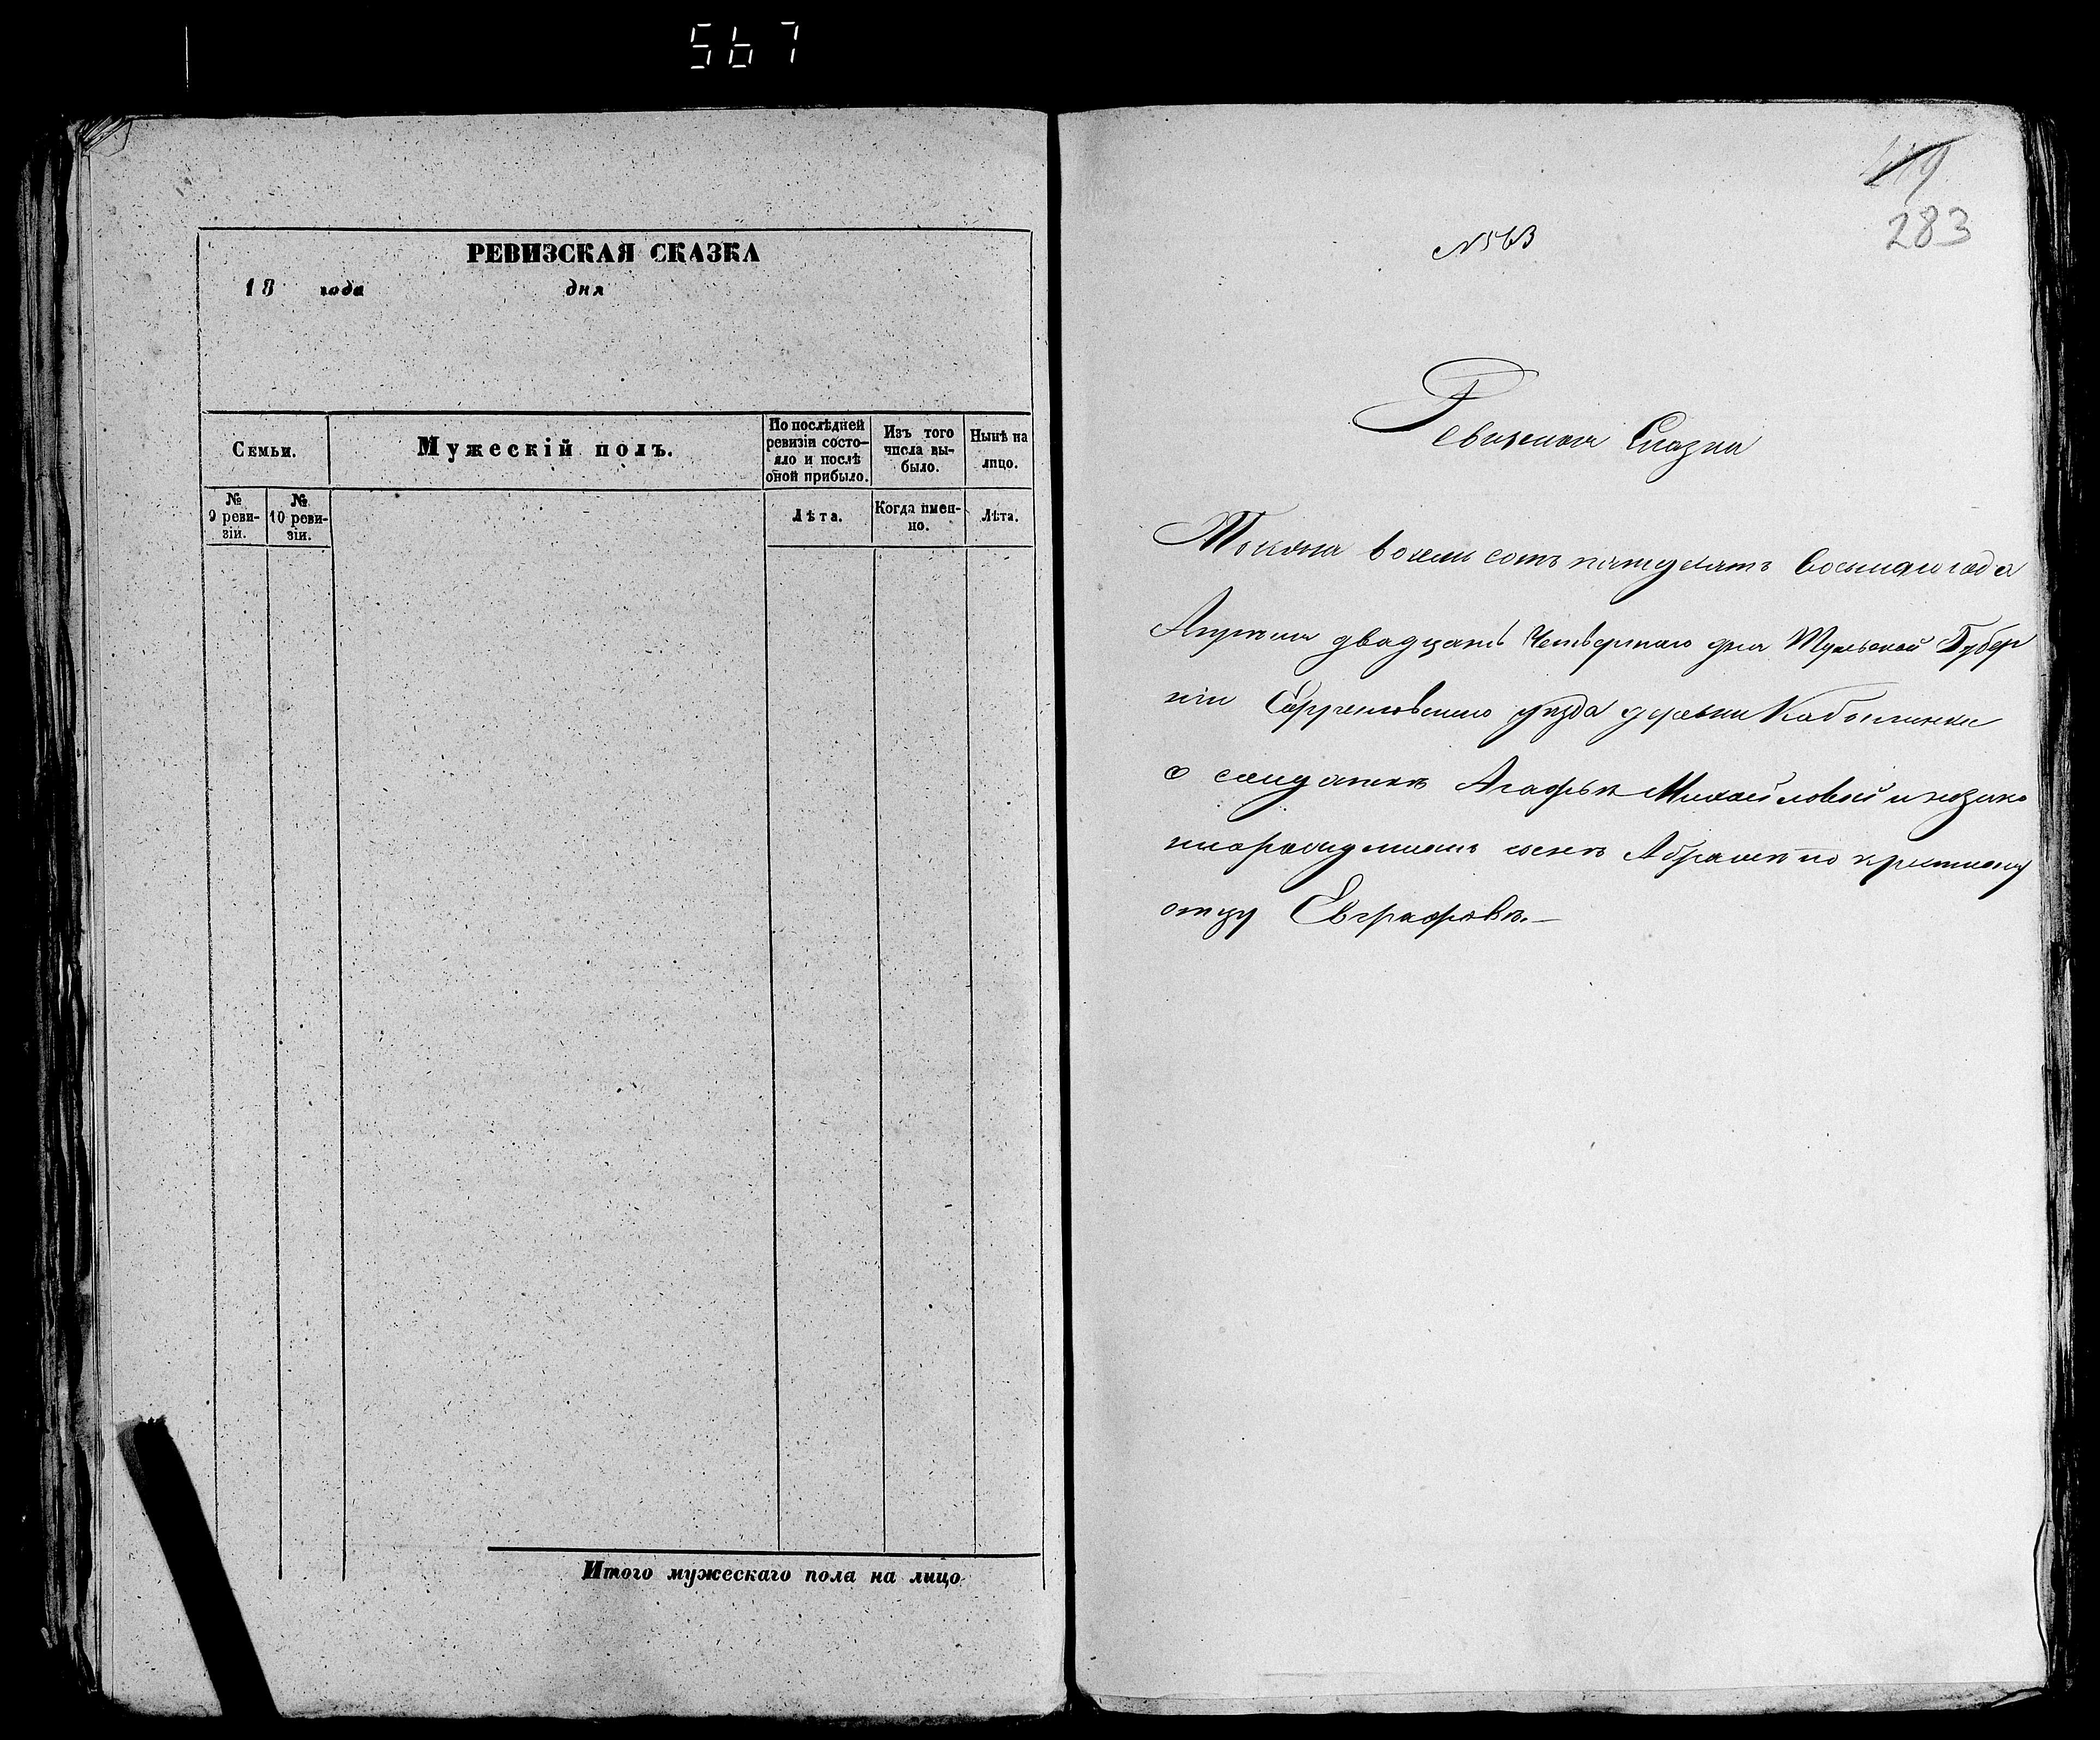 567
РЕВИЗСКАЯ СКАЗКА
18 года дня
Семьи.
Мужескій полъ.
По послѣдней ревизіи состояло и послѣ оной прибыло.
Изъ того числа выбыло.
Нынѣ на лицо.
№ 9 ревизіи.
№ 10 ревизіи.
Лѣта.
Когда именно.
Лѣта.
Итого мужескаго пола на лицо
283
Ревизская Сказка
Тысяча восемь сотъ пятьдесятъ восьмаго года
Апрѣля двадцать Четвертаго дня Тульской Губер
ніи Ефремовскаго уѣзда деревни
о солдаткѣ Агафьѣ Михайловой и незако
ннорожденномъ сынѣ Абрамѣ по крестному
отцу Евграфовѣ.—